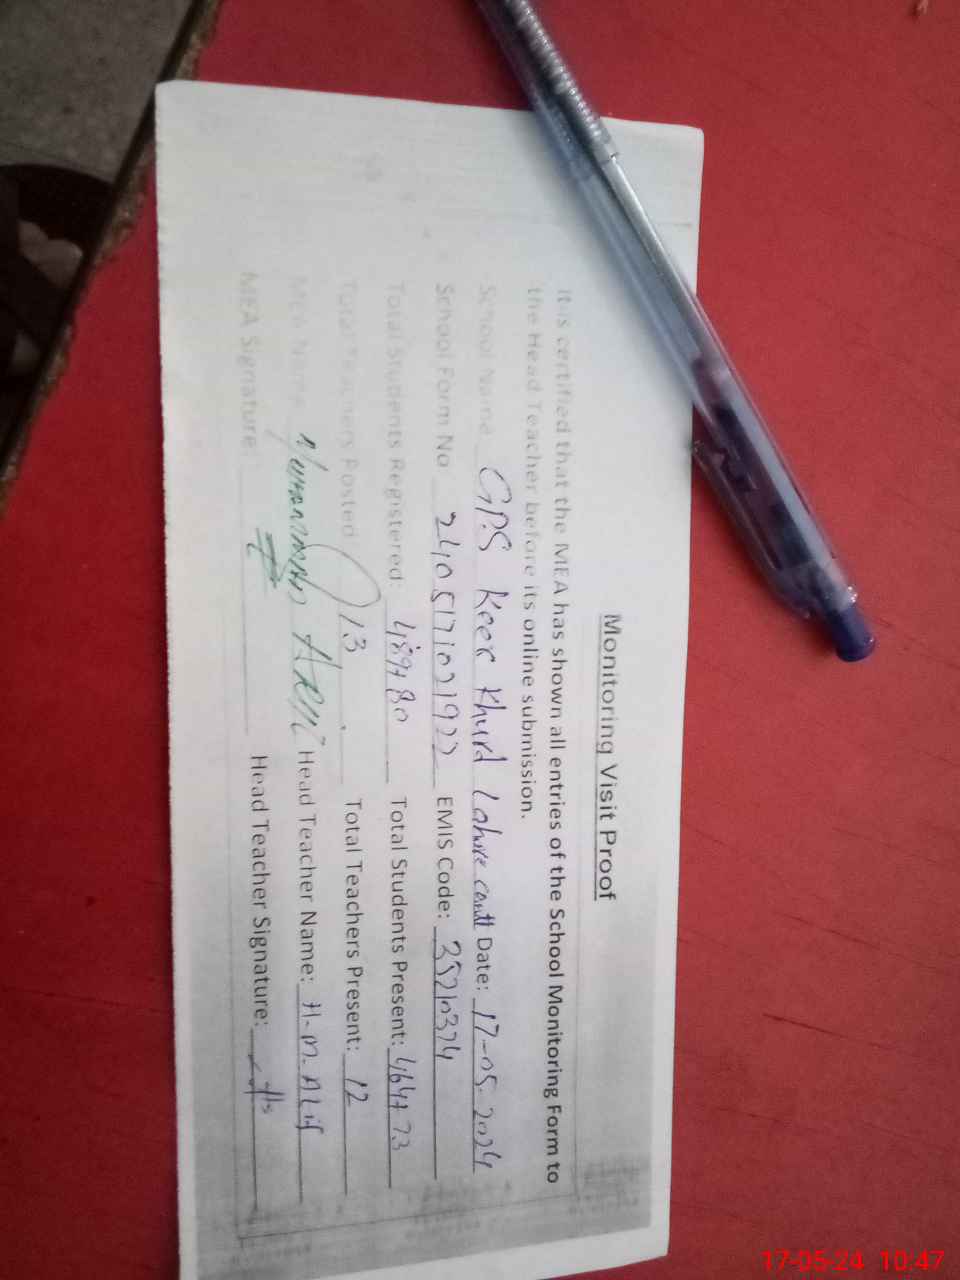 Monitoring Visit Proof
It is certified that the MEA has shown all entries of the School Monitoring Form to
the Head Teacher before its online submission.
School Name GPS Keer Khurd Lahore cantt Date: 17-05-2024
School Form No 2405171021922 EMIS Code: 35210374
Total Students Registered: 489+80 Total Students Present: 464+73
Total Teachers Posted 13 Total Teachers Present: 12
MEA Name Muhammad Head Teacher Name: H.M. ALif
MEA Signature: Head Teacher Signature:
17-05-24 10:47